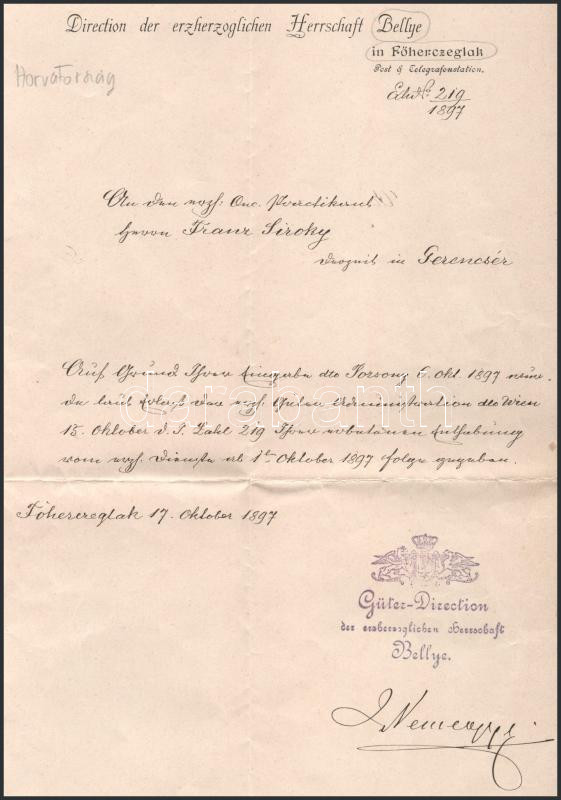 Direction der erzherzoglichen Herrschaft Bellye
in Főherczeglak
Post & Telegrafenstation.
Horvátország
Exh№ 219
1897
An den erzh. Oec. Practikant
Herrn Franz Siroky
derzeit in Gerencsér
Auf Grund Ihrer Eingabe dto Pozsony 6. Okt. 1897 wur-
de laut Erlass der erzh. Güter Administration dto Wien
15. Oktober d. J. Zahl 219 Ihrer erbetenen Enthebung
vom erzh. Dienste ab 1ten Oktober 1897 folge gegeben.
Főherczeglak 17. Oktober 1897
darabanth
Güter-Direction
der erzherzoglichen Herrschaft
Bellye.